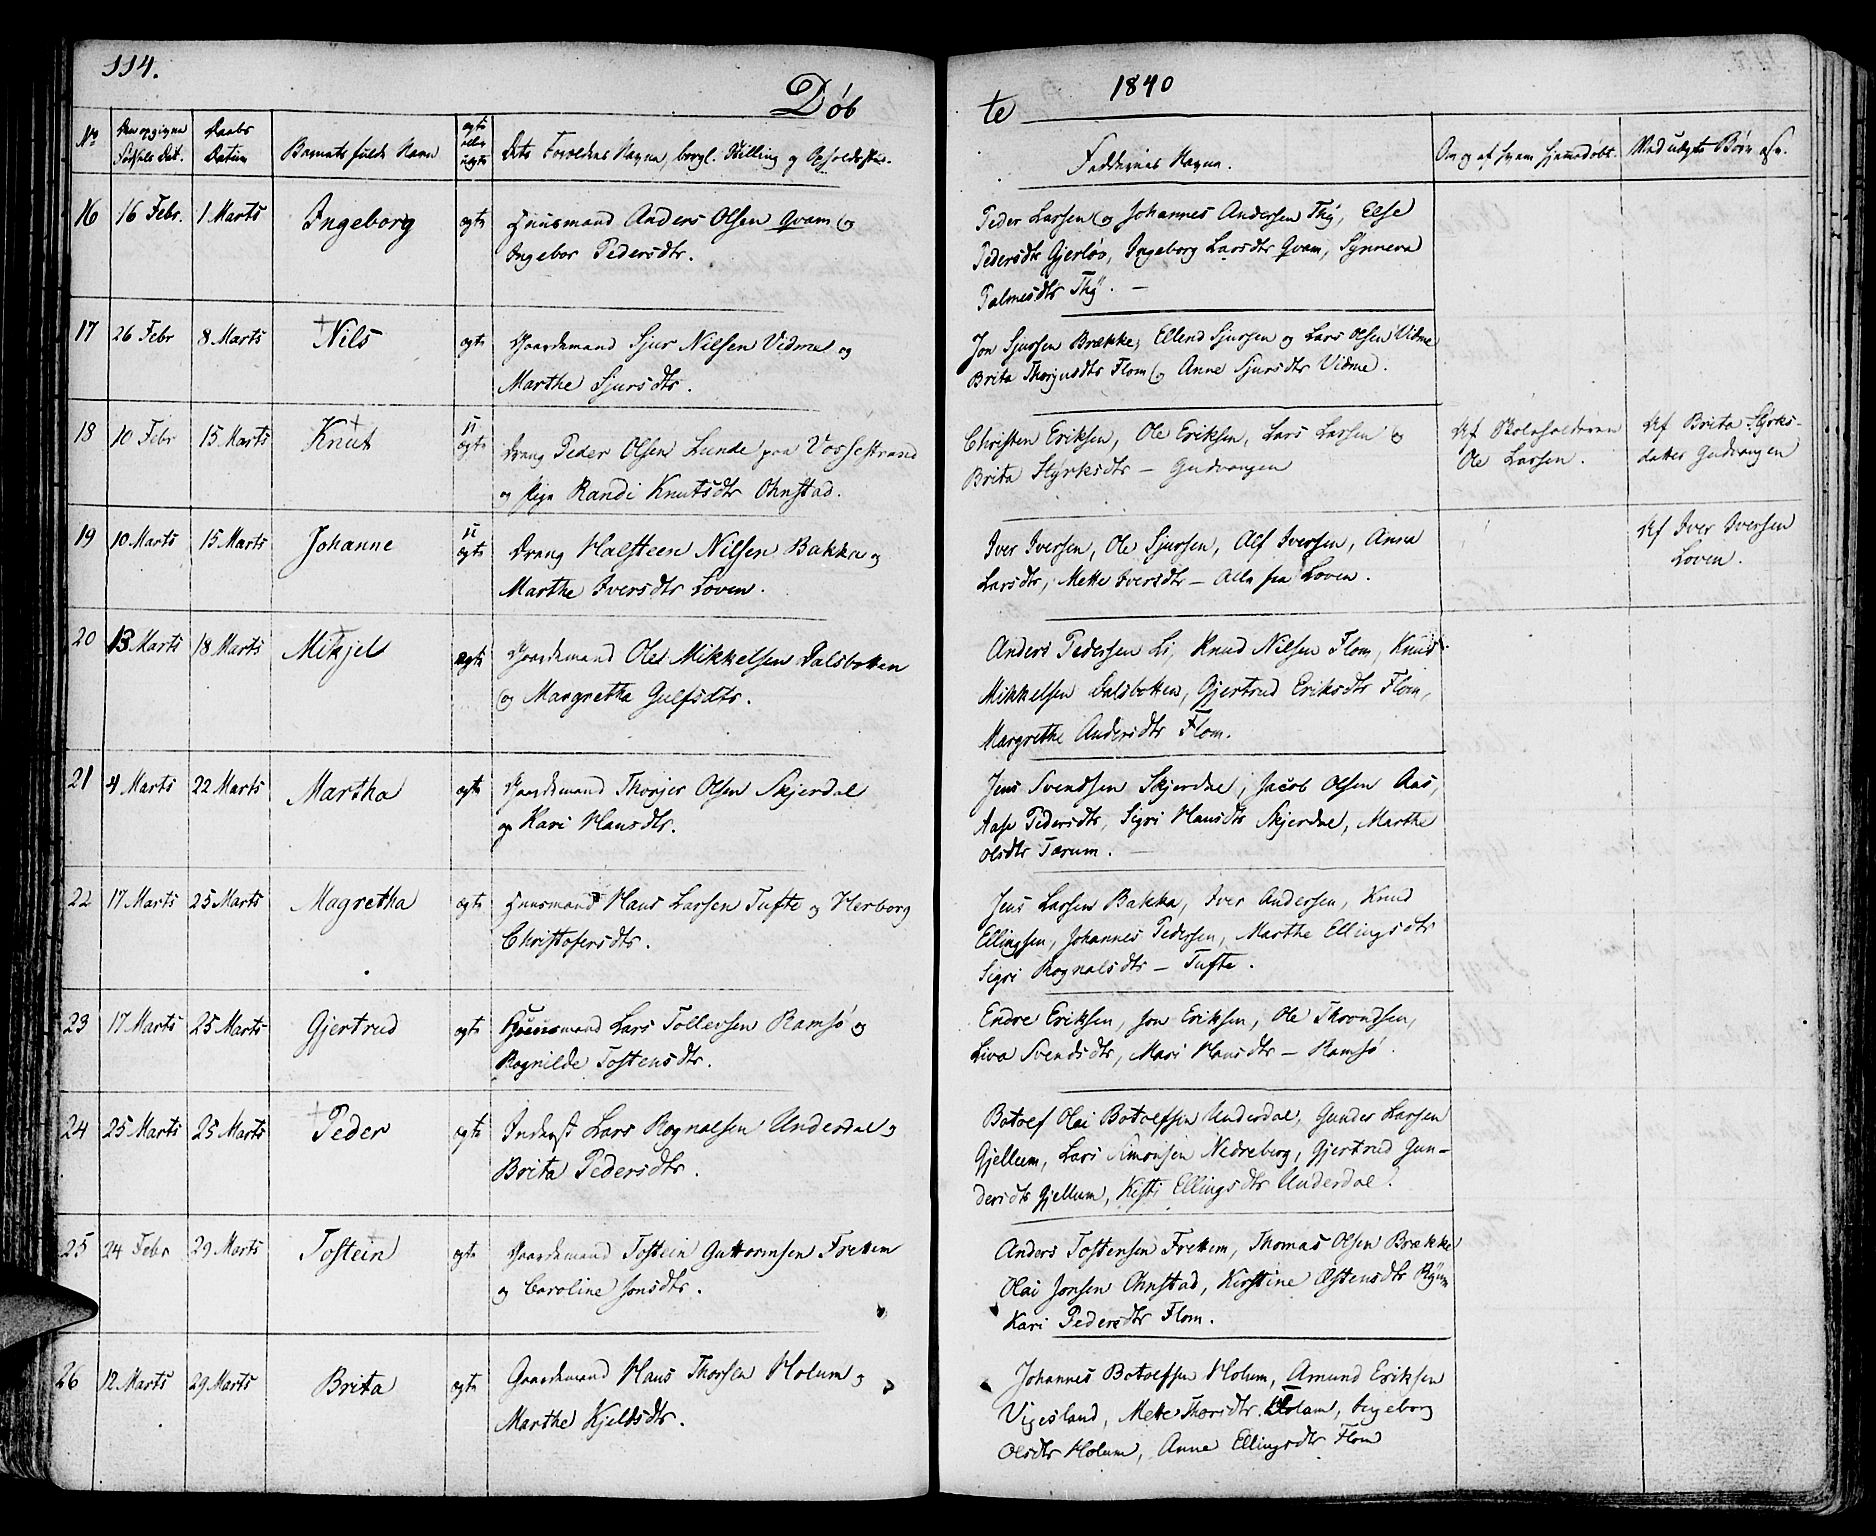 114.
Døbte 1840
No | Den opgivne Fødsels Dat. | Daabs Datum | Barnets fulde Navn | ægte eller uægte | Dets Forældres Navne, borgl. Stilling og Opholdssted. | Faddernes Navne. | Om og af hvem hjemmedøbt. | Med uægte Børn
16 | 16 Febr. | 1 Marts | Ingeborg | ægte | Huusmand Anders Olsen Qvam og
Ingebor Pedersdtr. | Peder Larsen og Johannes Andersen Thÿ, Else
Pedersdtr Gjerløv, Ingeborg Larsdtr Qvam, Synneva
Palmesdtr Thÿ. —
17 | 26 Febr | 8 Marts | Nils | ægte | Gaardemand Sjur Nilsen Vidme og
Marthe Sjursdtr. | Jon Sjursen Brække, Ellend Sjursen og Lars Olsen Vidme
Brita Thorjusdtr Flom og Anne Sjursdtr Vidme.
18 | 10 Febr | 15 Marts | Knut | uægte | Dreng Peder Olsen Lunde paa Vossestrand
og Pige Randi Knutsdtr Ohnstad. | Christen Eriksen, Ole Eriksen, Lars Larsen og
Brita Styrksdtr — Gudvangen | Af Skoleholderen
Ole Larsen. | Af Brita Styrks-
datter Gudvangen
19 | 10 Marts | 15 Marts | Johanne | uægte | Dreng Halsteen Nilsen Bakka og
Marthe Iversdtr Loven. | Iver Iversen, Ole Sjursen, Alf Iversen, Anna
Larsdtr, Mette Iversdtr — Alle fra Loven. | Af Iver Iversen
Loven.
20 | 13 Marts | 18 Marts | Mikjel | ægte | Gaardemand Ole Mikkelsen Dalsbotten
og Margretha Gulfsdtr. | Anders Pedersen Li, Knud Nilsen Flom, Knud
Mikkelsen Dalsbotten, Gjertrud Eriksdtr Flom,
Margrethe Andersdtr Flom.
21 | 4 Marts | 22 Marts | Martha | ægte | Gaardemand Thorjer Olsen Skjerdal
og Kari Hansdtr. | Jens Svendsen Skjerdal, Jacob Olsen Aas,
Aase Pedersdtr, Sigri Hansdtr Skjerdal, Marthe
Olsdtr Tærum. —
22 | 17 Marts | 25 Marts | Magretha | ægte | Huusmand Hans Larsen Tufte og Herborg
Christofersdtr. | Jens Larsen Bakka, Iver Andersen, Knud
Ellingsen, Johannes Pedersen, Marthe Ellingsdtr
Sigri Rognalsdtr — Tufte.
23 | 17 Marts | 25 Marts | Gjertrud | ægte | Huusmand Lars Tollersen Ramsø og
Rognilde Tostensdtr. | Endre Eriksen, Jon Eriksen, Ole Throndsen,
Liva Svendsdtr, Mari Hansdtr — Ramsø.
24 | 25 Marts | 25 Marts | Peder | ægte | Inderst Lars Rognalsen Underdal og
Brita Pedersdtr. | Botolf Olai Botolfsen Underdal, Gunder Larsen
Gjellum, Lars Simonsen Nedreberg, Gjertrud Gun-
dersdtr Gjellum, Kisti Ellingsdtr Underdal.
25 | 24 Febr | 29 Marts | Tostein | ægte | Gaardemand Tostein Guttormsen Fretem
og Caroline Jonsdtr. | Anders Tostensen Frettem, Thomas Olsen Brække
Olai Jonsen Ohnstad, Kirstine Østensdtr Ryum
Kari Pedersdtr Flom.
26 | 12 Marts | 29 Marts | Brita | ægte | Gaardemand Hans Thorsen Holum og
Marthe Kjeldsdtr. | Johannes Botolfsen Holum, Amund Eriksen
Vigesland, Mette Thorsdtr Holum, Ingeborg
Olsdtr Holum, Anne Ellingsdtr Flom